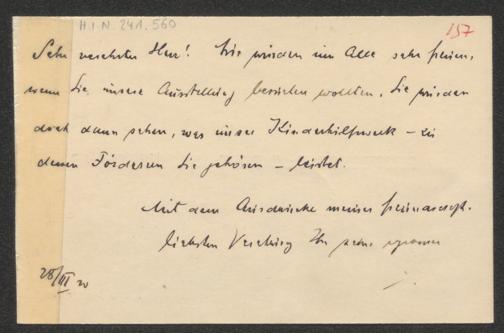 H.I.N. 241.560
157
Sehr verehrter Herr! Wir würden uns Alle sehr freuen,
wenn Sie unsere Ausstellung besuchen wollten. Sie würden
doch dann sehen, was unser Kinderhilfswerk – zu
dessen Förderern Sie gehören – leistet.
Mit dem Ausdrucke meiner freundschaft-
lichsten Verehrung Ihr
28/III 20